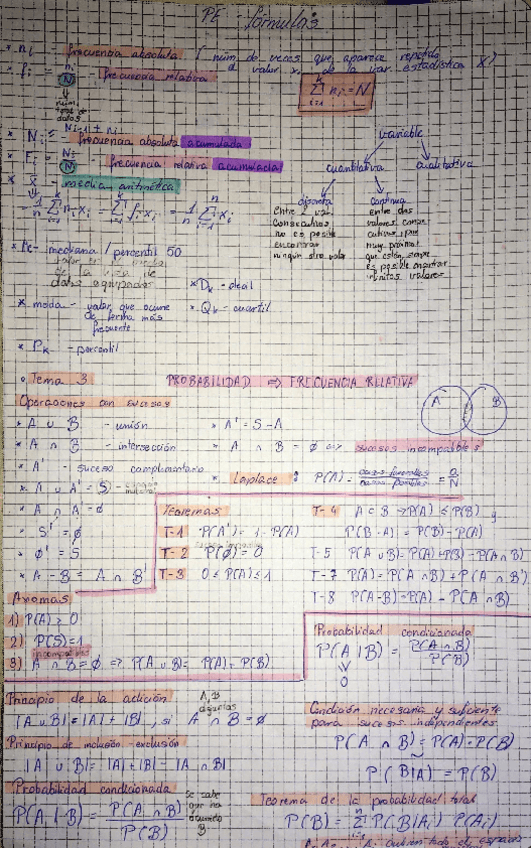 PE - fórmulas
* ni - frecuencia absoluta (núm. de veces que aparece repetido
el valor xi de la var. estadística X)
* fi = ni/N - frecuencia relativa
núm. total de datos
Σ ni = N
* Ni = Ni-1 + ni
frecuencia absoluta acumulada
* Fi = Ni/N - frecuencia relativa acumulada
* x̄ - media aritmética
= 1/n Σ ni xi = Σ fi xi = 1/n Σ xi
variable
cuantitativa
cualitativa
discreta
entre 2 val.
consecutivos
no es posible
encontrar
ningún otro valor
continua
entre dos
valores conse
cutivos por
muy próximos
que estén, siempre
es posible encontrar
infinitos valores
* Me - mediana / percentil 50
datos agrupados
* Dk - decil
* moda - valor que ocurre
de forma más
frecuente
* Qk - cuartil
* Pk - percentil
• Tema 3
PROBABILIDAD ⇒ FRECUENCIA RELATIVA
Operaciones con sucesos
A B
* A ∪ B - unión
* A' = S - A
* A ∩ B - intersección
* A ∩ B = ∅ ⇔ sucesos incompatibles
* A' - suceso complementario
* Laplace : P(A) = casos favorables / casos posibles = n/N
* A ∪ A' = S
* A ∩ A' = ∅
* S' = ∅
* ∅' = S
* A - B = A ∩ B'
Teoremas
T-1 P(A') = 1 - P(A)
T-2 P(∅) = 0
T-3 0 ≤ P(A) ≤ 1
T-4 A ⊂ B → P(A) ≤ P(B) y
P(B - A) = P(B) - P(A)
T-5 P(A ∪ B) = P(A) + P(B) - P(A ∩ B)
T-7 P(A) = P(A ∩ B) + P(A ∩ B')
T-8 P(A-B) = P(A) - P(A ∩ B)
Axiomas
1) P(A) ≥ 0
2) P(S) = 1
incompatibles
3) A ∩ B = ∅ ⇒ P(A ∪ B) = P(A) + P(B)
Probabilidad condicionada
P(A | B) = P(A ∩ B) / P(B)
0
Principio de la adición
A, B
|A ∪ B| = |A| + |B|, si A ∩ B = ∅
Principio de inclusión-exclusión
|A ∪ B| = |A| + |B| - |A ∩ B|
Condición necesaria y suficiente
para sucesos independientes
P(A ∩ B) = P(A) · P(B)
P(B|A) = P(B)
Probabilidad condicionada
P(A | B) = P(A ∩ B) / P(B)
se sabe
que ha
ocurrido
B
Teorema de la probabilidad total
P(B) = Σ P(B|Ai) P(Ai)